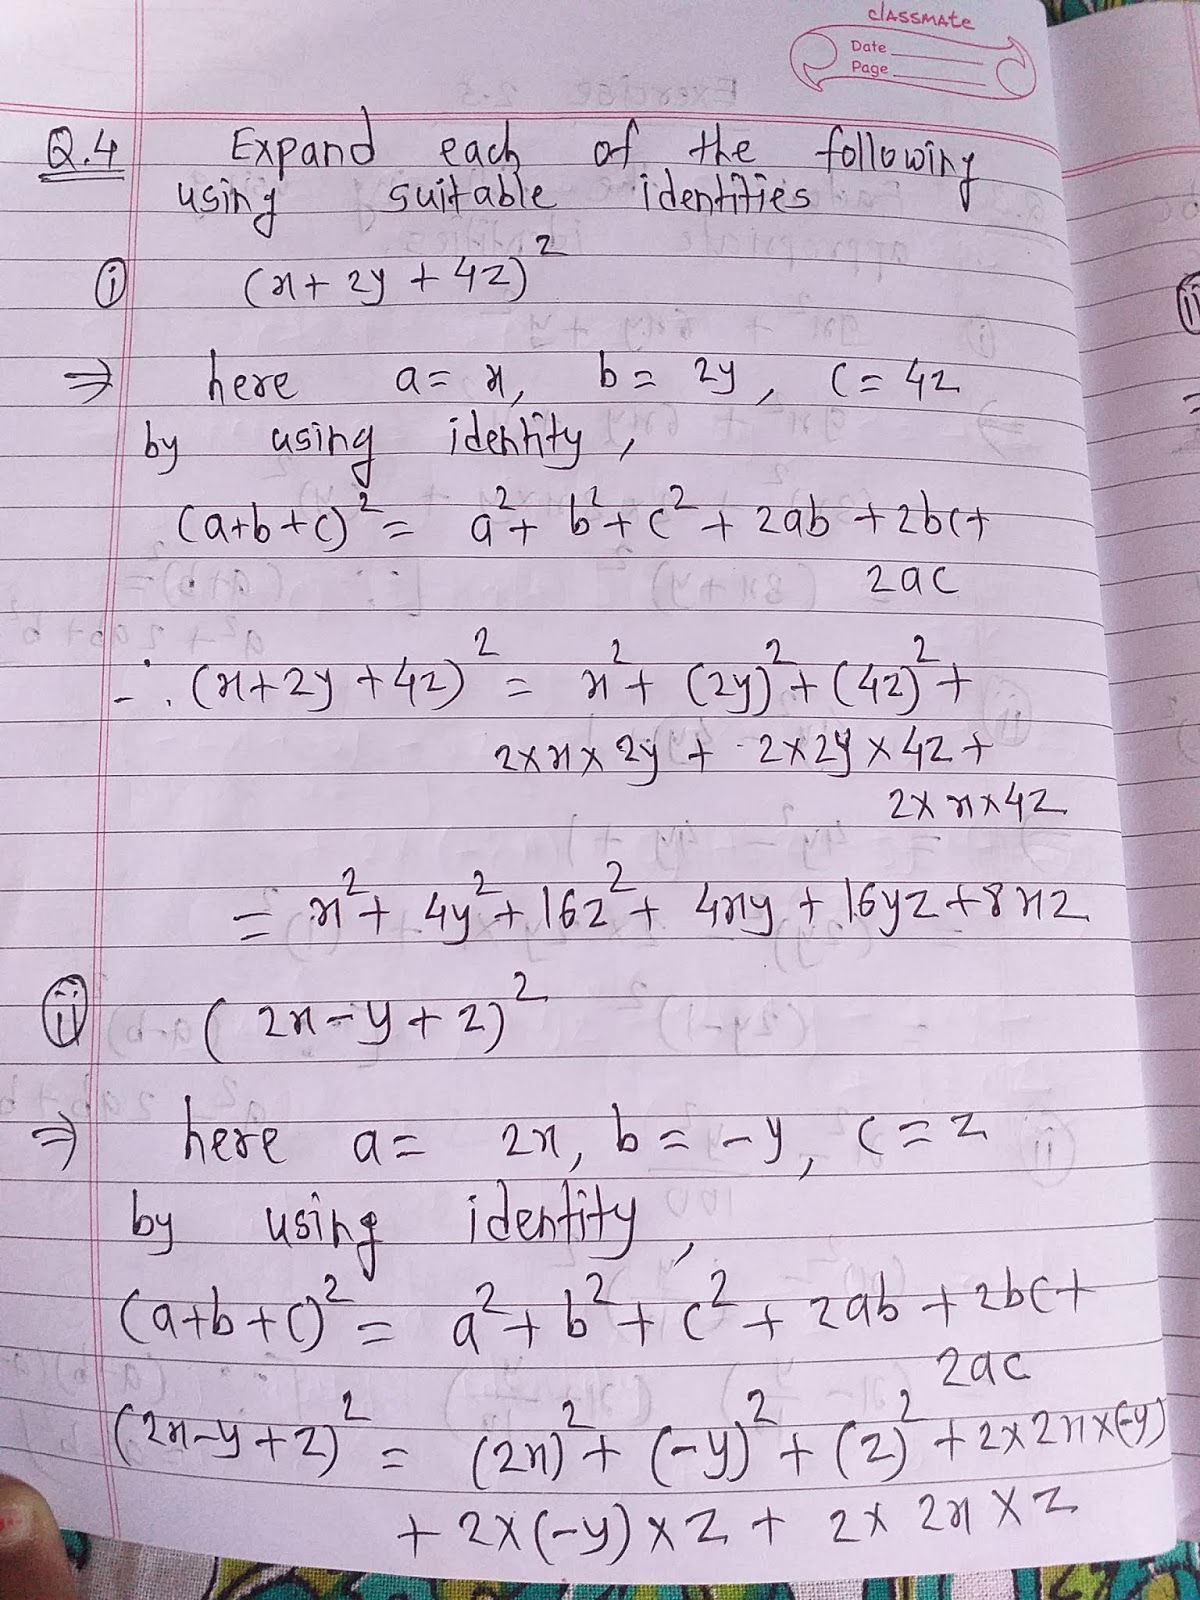 classmate
Date
Page
Q.4 Expand each of the following
using suitable identities
(i) (x + 2y + 4z)²
⇒ here a = x, b = 2y, c = 4z
by using identity,
(a+b+c)² = a² + b² + c² + 2ab + 2bc +
2ac
∴ (x+2y+4z)² = x² + (2y)² + (4z)² +
2×x×2y + 2×2y×4z +
2×x×4z
= x² + 4y² + 16z² + 4xy + 16yz + 8xz
(ii) (2x - y + z)²
⇒ here a = 2x, b = -y, c = z
by using identity,
(a+b+c)² = a² + b² + c² + 2ab + 2bc +
2ac
(2x-y+z)² = (2x)² + (-y)² + (z)² + 2×2x×(-y)
+ 2×(-y)×z + 2×2x×z